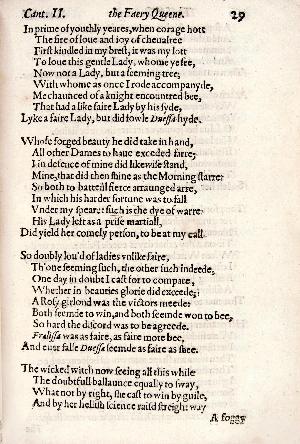 Cant. II. the Faery Queene. 29
In prime of youthly yeares, when corage hott
The fire of loue and ioy of cheualree
First kindled in my brest, it was my lott
To loue this gentle Lady, whome ye see,
Now not a Lady, but a seeming tree;
With whome as once I rode accompanyde,
Me chaunced of a knight encountred bee,
That had a like faire Lady by his syde,
Lyke a faire Lady, but did fowle Duessa hyde.
Whose forged beauty he did take in hand,
All other Dames to haue exceded farre;
I in defence of mine did likewise stand,
Mine, that did then shine as the Morning starre:
So both to batteill fierce arraunged arre,
In which his harder fortune was to fall
Vnder my speare: such is the dye of warre:
His Lady left as a prise martiall,
Did yield her comely person, to be at my call.
So doubly lou'd of ladies vnlike faire,
Th'one seeming such, the other such indeede,
One day in doubt I cast for to compare,
Whether in beauties glorie did exceede;
A Rosy girlond was the victors meede:
Both seemde to win, and both seemde won to bee,
So hard the discord was to be agreede.
Frælissa was as faire, as faire mote bee,
And euer false Duessa seemde as faire as shee.
The wicked witch now seeing all this while
The doubtfull ballaunce equally to sway,
What not by right, she cast to win by guile,
And by her hellish science raisd streight way
A foggy